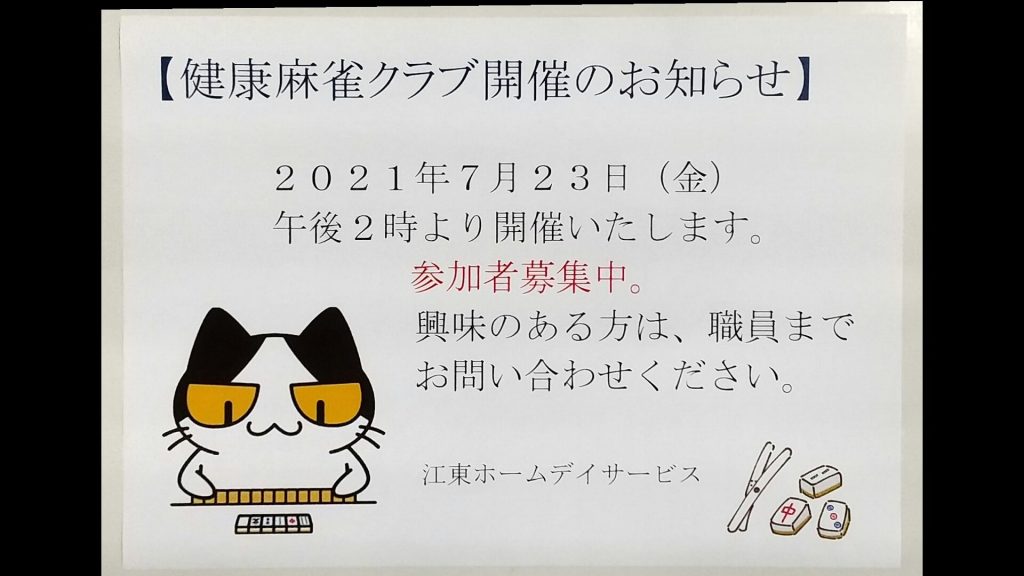 【健康麻雀クラブ開催のお知らせ】
２０２１年７月２３日（金）
午後２時より開催いたします。
参加者募集中。
興味のある方は、職員まで
お問い合わせください。
江東ホームデイサービス
中